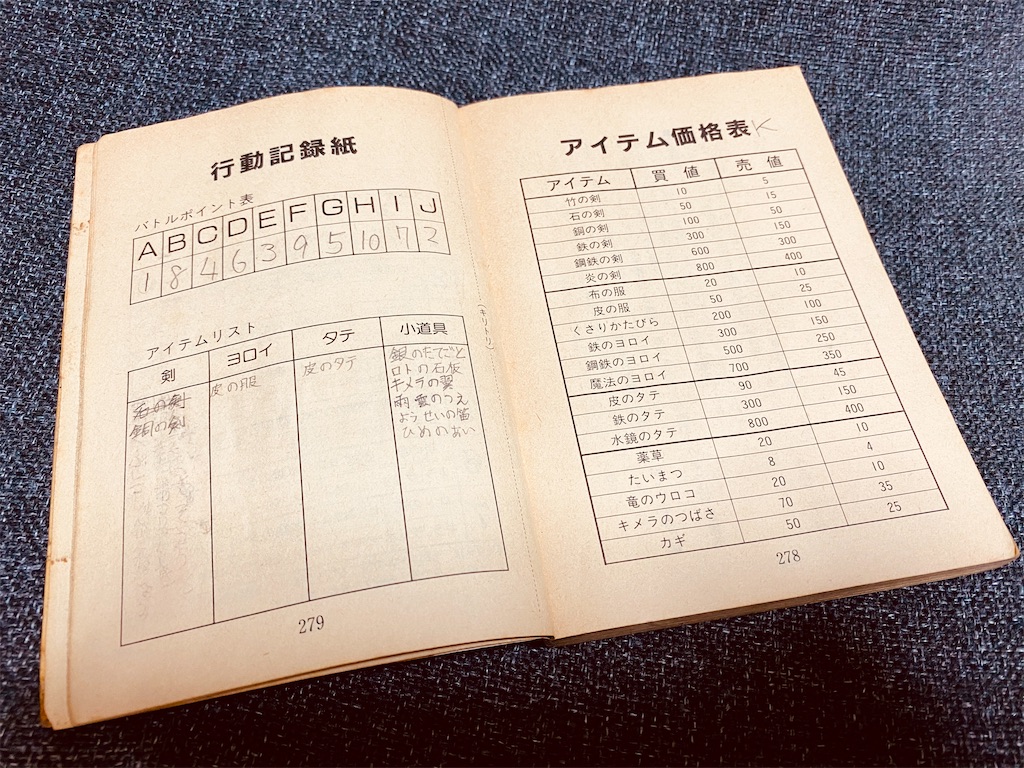 アイテム価格表 K
アイテム 買値 売値
竹の剣 10 5
石の剣 50 15
銅の剣 100 50
鉄の剣 300 150
鋼鉄の剣 600 300
炎の剣 800 400
布の服 20 10
皮の服 50 25
くさりかたびら 200 100
鉄のヨロイ 300 150
鋼鉄のヨロイ 500 250
魔法のヨロイ 700 350
皮のタテ 90 45
鉄のタテ 300 150
水鏡のタテ 800 400
薬草 20 10
たいまつ 8 4
竜のウロコ 20 10
キメラのつばさ 70 35
カギ 50 25
278
(キリトリ)
行動記録紙
バトルポイント表
A B C D E F G H I J
1 8 4 6 3 9 5 10 7 2
アイテムリスト
剣 ヨロイ タテ 小道具
石の剣
銅の剣
皮の服
皮のタテ
銀のたてごと
ロトの石板
キメラの翼
雨雲のつえ
ようせいの笛
ひめのあい
279